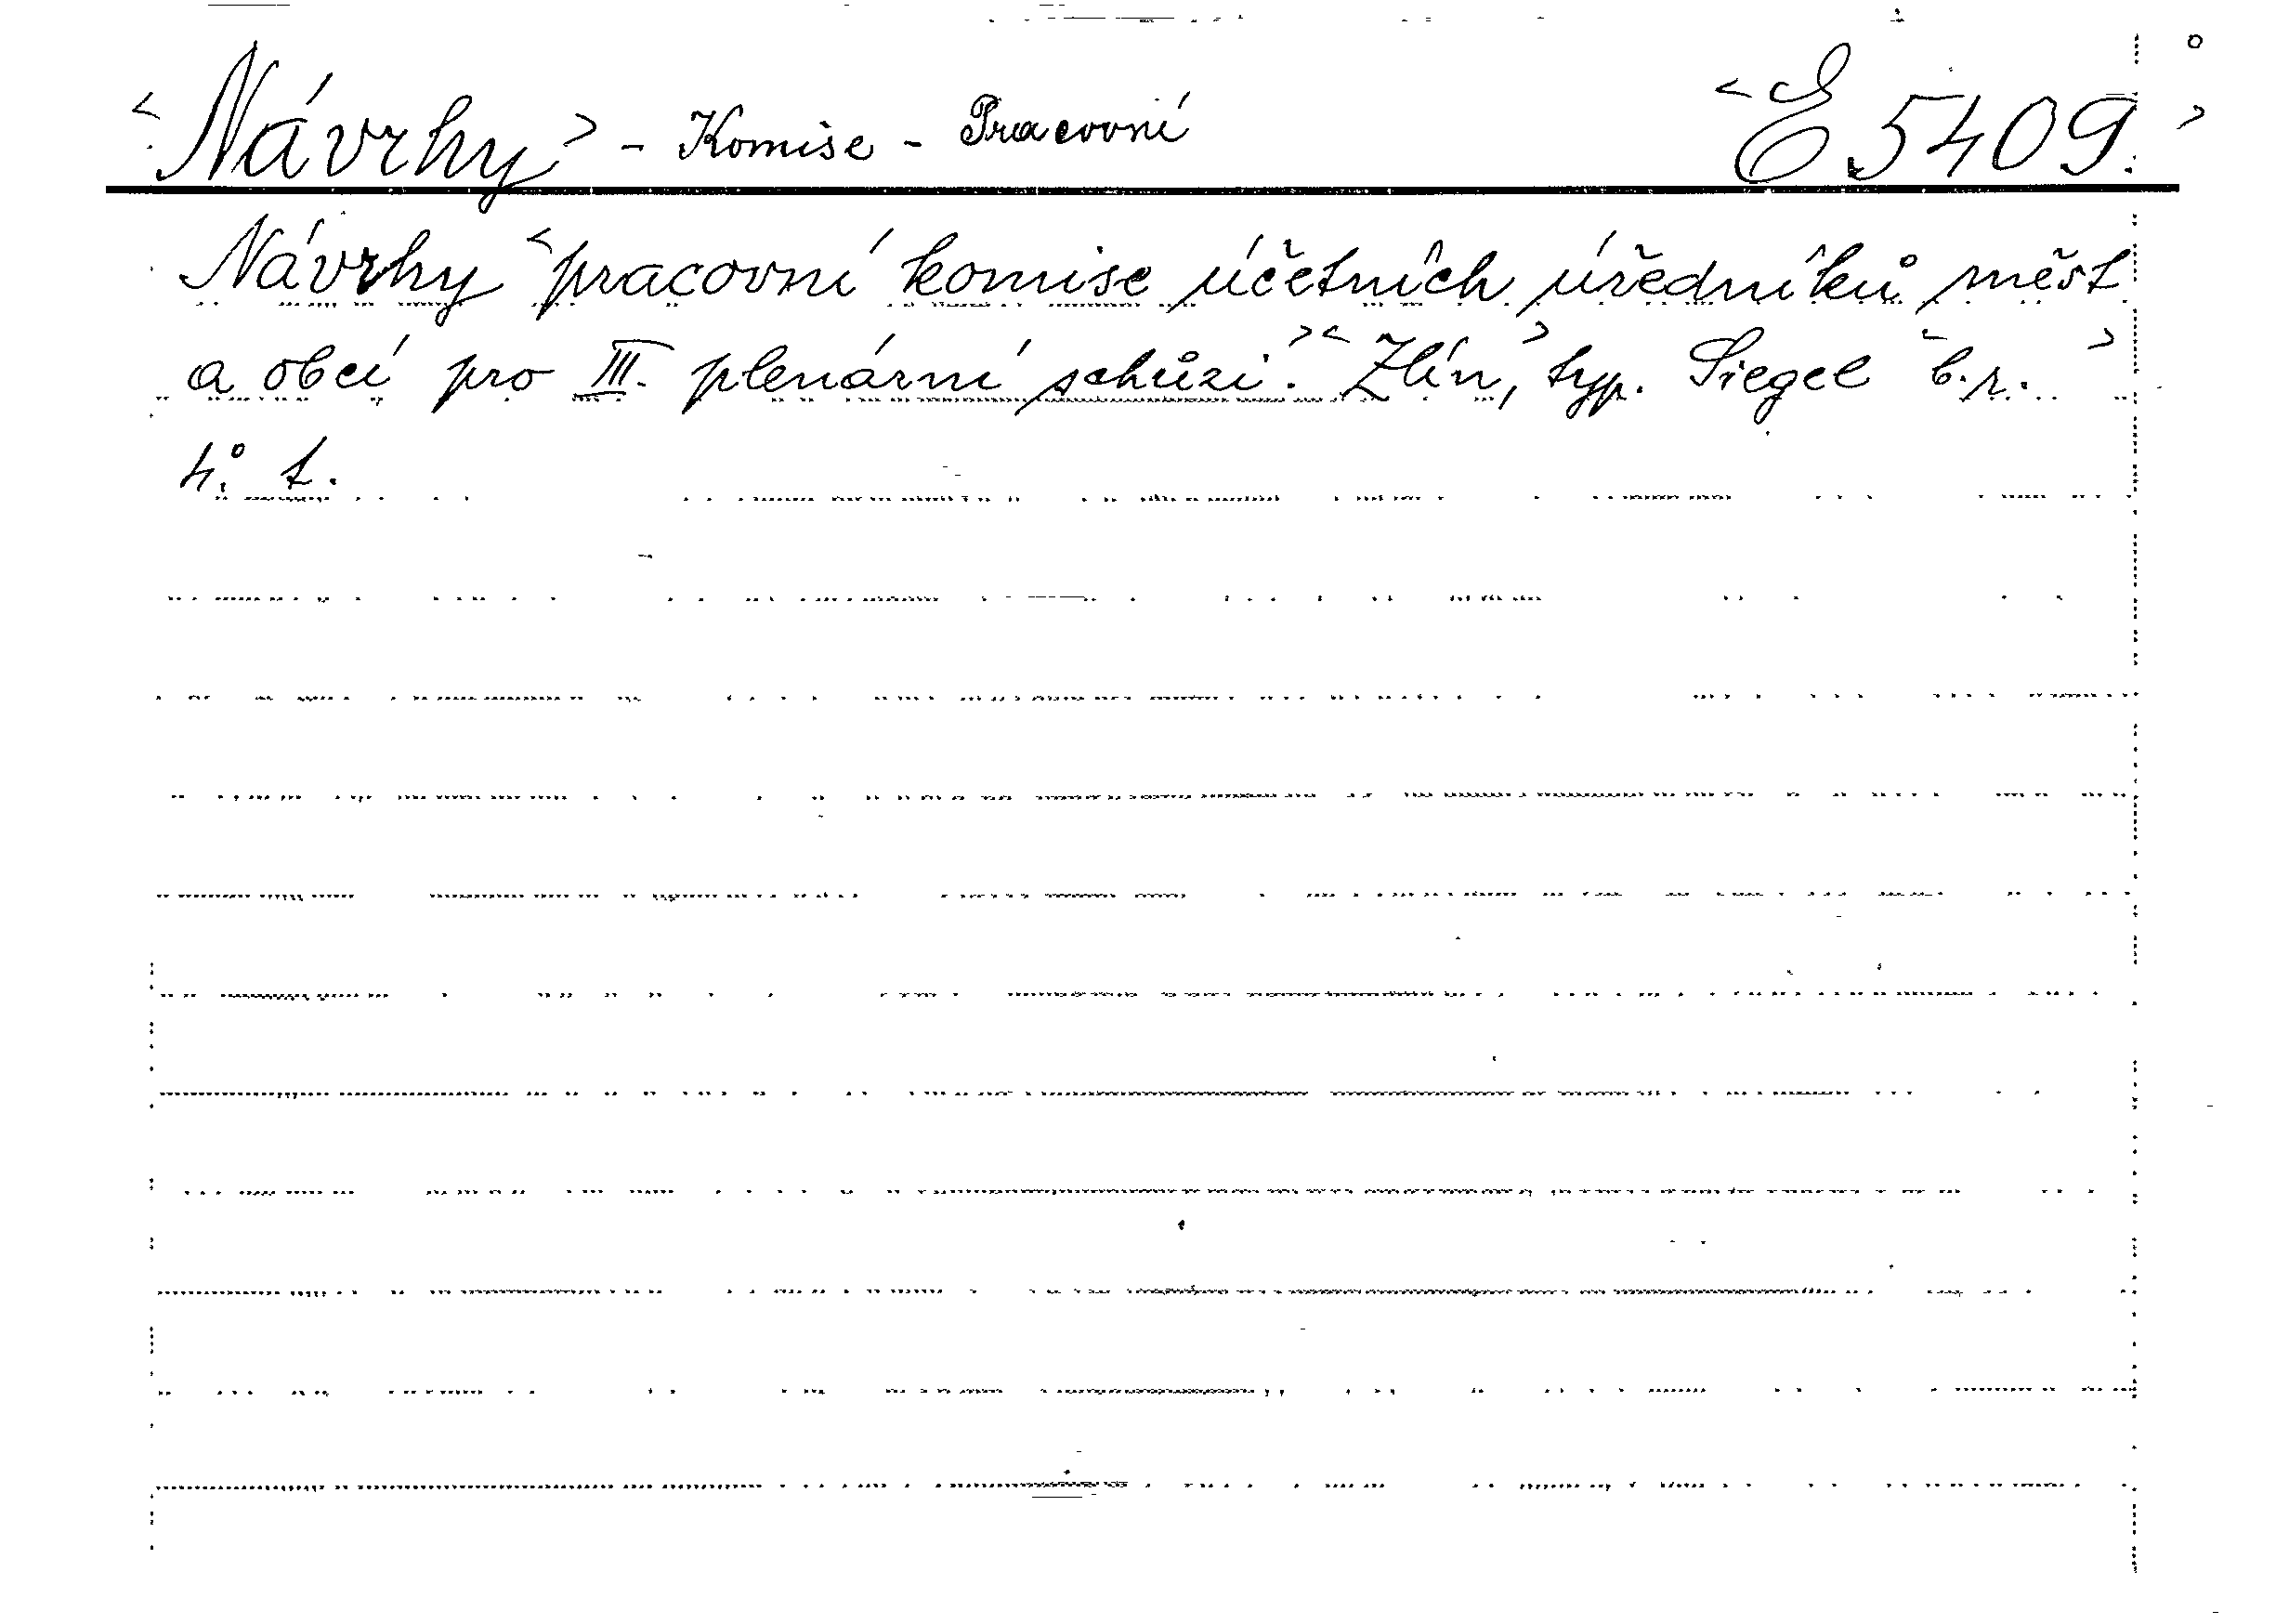 <Návrhy> - Komise - Pracovní <E 5409.>
Návrhy <pracovní komise účetních úředníků měst
a obcí pro III. plenární schůzi.> <Zlín,> typ. Siegel <b.r.>
4° t.